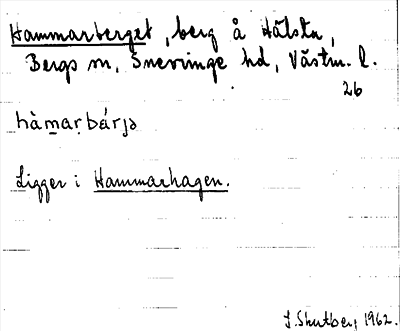 Hammarberget, berg å Hälsta,
Bergs sn, Snevringe hd, Västm. l.
26
hàmarbárjə
Ligger i Hammarhagen.
1962.